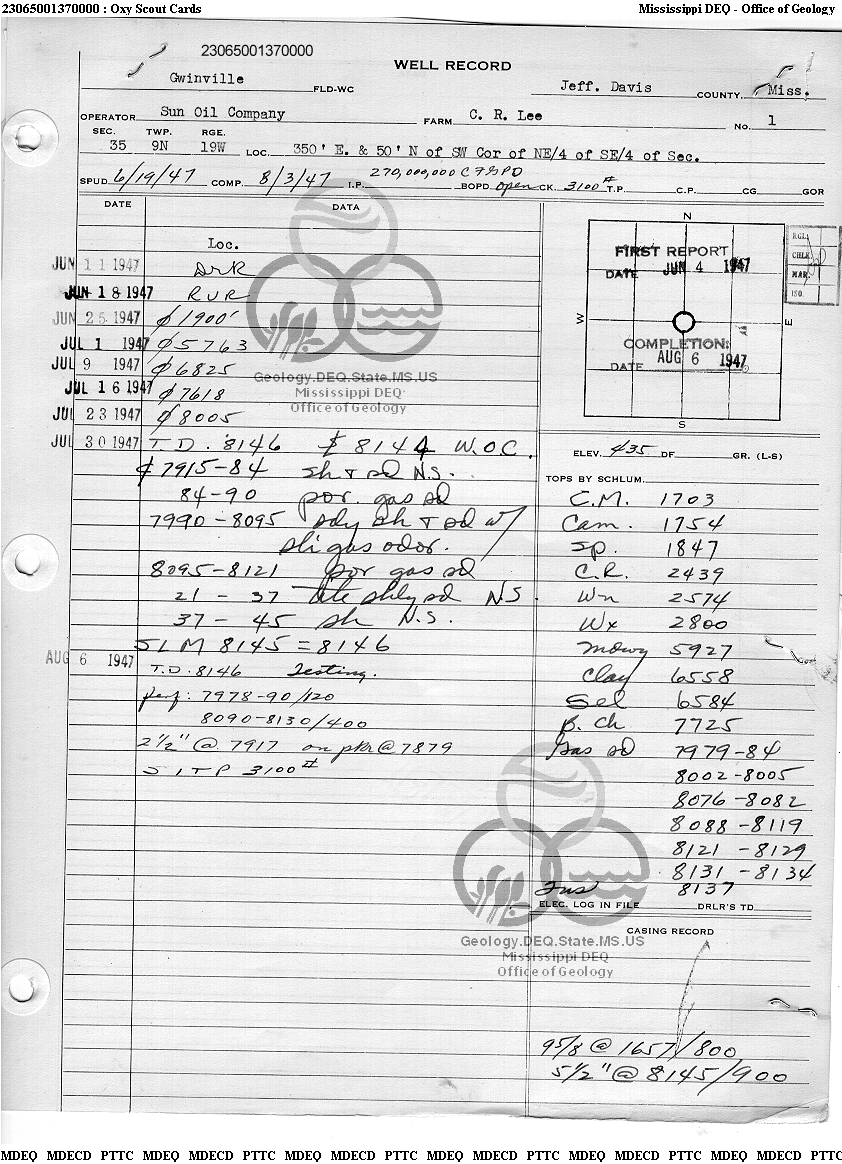 23065001370000 : Oxy Scout Cards Mississippi DEQ - Office of Geology
23065001370000
WELL RECORD
Gwinville FLD-WC Jeff. Davis COUNTY, Miss.
OPERATOR Sun Oil Company FARM C. R. Lee No. 1
SEC. TWP. RGE.
35 9N 19W LOC. 350' E. & 50' N of SW Cor of NE/4 of SE/4 of Sec.
SPUD 6/19/47 COMP. 8/3/47 I.P. 270,000,000 CFGPD BOPD open CK. 3100# T.P. C.P. CG GOR
DATE DATA
Loc.
JUN 11 1947 Drk
JUN 18 1947 RUR
JUN 25 1947 ⌀ 1900'
JUL 1 1947 ⌀ 5763
JUL 9 1947 ⌀ 6825
JUL 16 1947 ⌀ 7618
JUL 23 1947 ⌀ 8005
JUL 30 1947 T.D. 8146 8144 W.O.C.
7915-84 sh & sd N.S.
84-90 por. gas sd
7990-8095 sdy sh & sd w/
sli gas odor.
8095-8121 por gas sd
21 - 37 tite shly sd N.S.
37 - 45 sh N.S.
SLM 8145 = 8146
AUG 6 1947
T.D. 8146 Testing.
perf: 7978-90/120
8090-8130/400
2 1/2" @ 7917 on pkr @ 7879
SITP 3100#
N
W
E
S
FIRST REPORT
DATE JUN 4 1947
COMPLETION:
DATE AUG 6 1947
RGL.
CHLK
MAR.
ISO.
ELEV. 435 DF GR. (L-S)
TOPS BY SCHLUM.
C.M. 1703
Cam. 1754
Sp. 1847
C.R. 2439
Wn 2574
Wx 2800
Mowy 5927
Clay 6558
Sel 6584
B. Ch 7725
Gas sd 7979-84
8002-8005
8076-8082
8088-8119
8121-8129
8131-8134
Tus 8137
ELEC. LOG IN FILE DRLR'S TD
CASING RECORD
9 5/8 @ 1657/800
5 1/2" @ 8145/900
Geology.DEQ.State.MS.US
Mississippi DEQ
Office of Geology
Geology.DEQ.State.MS.US
Mississippi DEQ
Office of Geology
MDEQ MDECD PTTC MDEQ MDECD PTTC MDEQ MDECD PTTC MDEQ MDECD PTTC MDEQ MDECD PTTC MDEQ MDECD PTTC